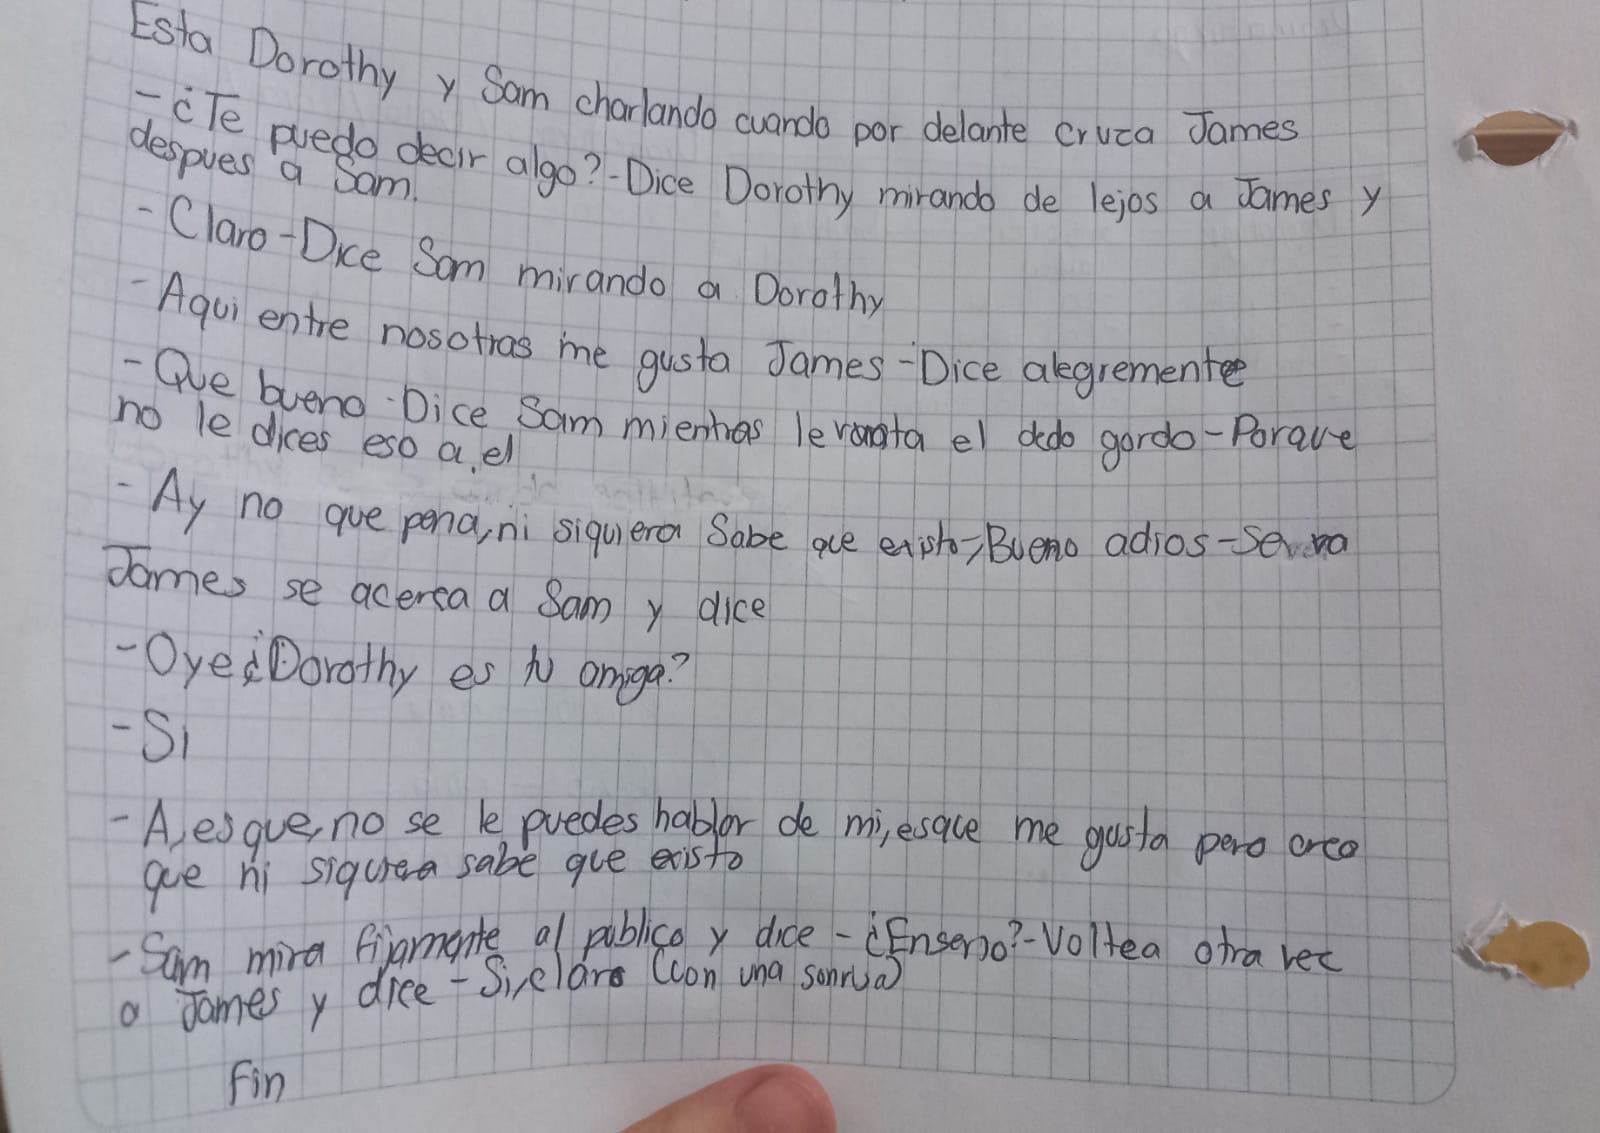 Esta Dorothy y Sam charlando cuando por delante cruza James
- ¿Te puedo decir algo?-Dice Dorothy mirando de lejos a James y
despues a Sam.
- Claro-Dice Sam mirando a Dorothy
- Aqui entre nosotras me gusta James-Dice alegremente
- Que bueno-Dice Sam mientras levanta el dedo gordo-Porque
no le dices eso a el
- Ay no que pena, ni siquiera Sabe que existo-Bueno adios-Se va
James se acerca a Sam y dice
- Oye ¿Dorothy es tu amiga?
- Si
- A, es que, no se le puedes hablar de mi, esque me gusta pero creo
que ni siquiera sabe que existo
- Sam mira fijamente al publico y dice - ¿Enserio?-Voltea otra vez
a James y dice - Si, claro (con una sonrisa)
Fin